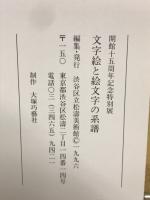 開館十五周年記念特別展
文字絵と絵文字の系譜
編集・発行 渋谷区立松濤美術館©一九九六
〒一五〇 東京都渋谷区松濤二丁目一四番一四号
電話〇三(三四六五)九四二一
制作 大塚巧藝社